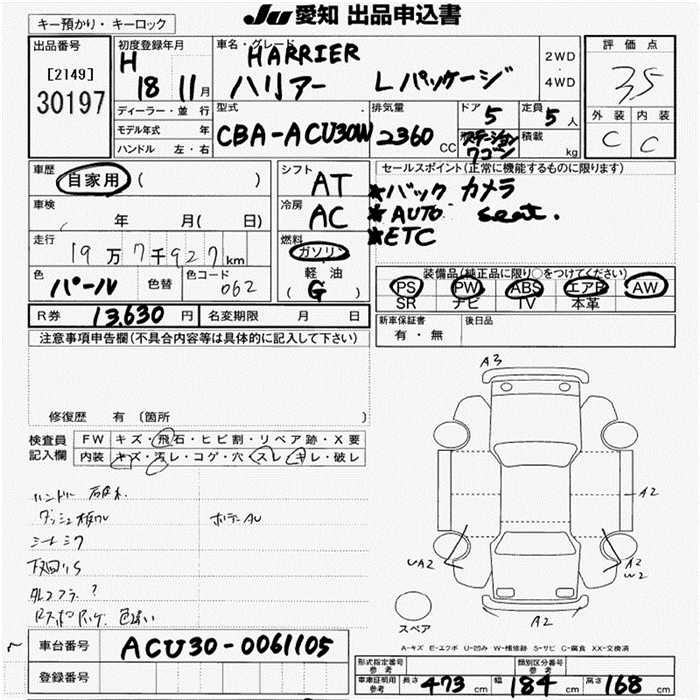 Ju 愛知 出品申込書
キー預かり・キーロック
出品番号
[2149]
30197
初度登録年月
H 18 11月
車名・グレード
HARRIER
ハリアー Lパッケージ
2WD
4WD
評価点
3.5
外装 内装
C C
ディーラー・並行
モデル年式 年
ハンドル 左・右
型式
CBA-ACU30W
排気量
2360 CC
ドア 5
ステーション
ワゴン
定員 5人
積載 kg
車歴
自家用 ( )
車検
年 月( 日)
走行
19万7千927km
色
パール
色替
色コード
062
シフト
AT
冷房
AC
燃料
ガソリン
軽油
(G)
セールスポイント(正常に機能するものに限ります)
★バックカメラ
★AUTO seat.
★ETC
装備品(純正品に限り○をつけてください)
PS PW ABS エアB AW
SR ナビ TV 本革
R券 13,630 円
名変期限 月 日
新車保証書
有・無
後日品
注意事項申告欄(不具合内容等は具体的に記入して下さい)
修復歴 有 (箇所 )
検査員
記入欄
FW キズ・飛石・ヒビ割・リペア跡・X要
内装 キズ・汚レ・コゲ・穴・スレ・キレ・破レ
ハンドル
ダッシュ
ボデーAU
シートシワ
下回りS
色違い
A3
A2
UA2
A2
W2
A2
スペア
A-キズ E-エクボ U-凹み W-補修跡 S-サビ C-腐食 XX-交換済
車台番号
ACU30-0061105
登録番号
形式指定番号
参考
類別区分番号
参考
車庫証明用
参考
長さ 473 cm
幅 184 cm
高さ 168 cm